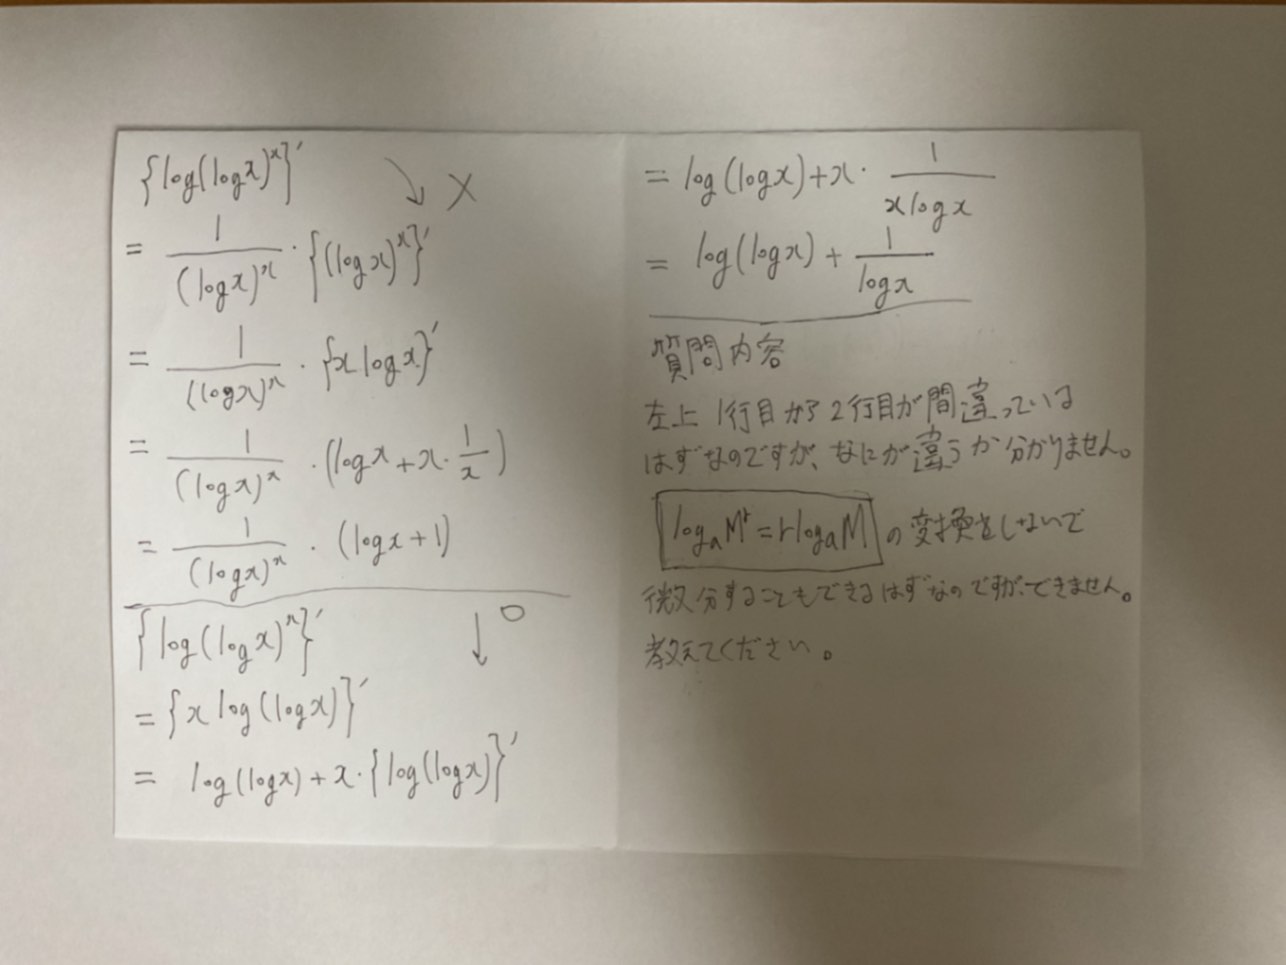 {log(logx)^x}' ↘ ×
= 1/(logx)^x ・ {(logx)^x}'
= 1/(logx)^x ・ {x logx}'
= 1/(logx)^x ・ (logx + x・1/x)
= 1/(logx)^x ・ (logx + 1)
{log(logx)^x}' ↓ ○
= {x log(logx)}'
= log(logx) + x・{log(logx)}'
= log(logx) + x・ 1/(x logx)
= log(logx) + 1/logx
質問内容
左上 1行目から2行目が間違っている
はずなのですが、なにが違うか分かりません。
log_a M^r = r log_a M の変換をしないで
微分することもできるはずなのですが、できません。
教えてください。